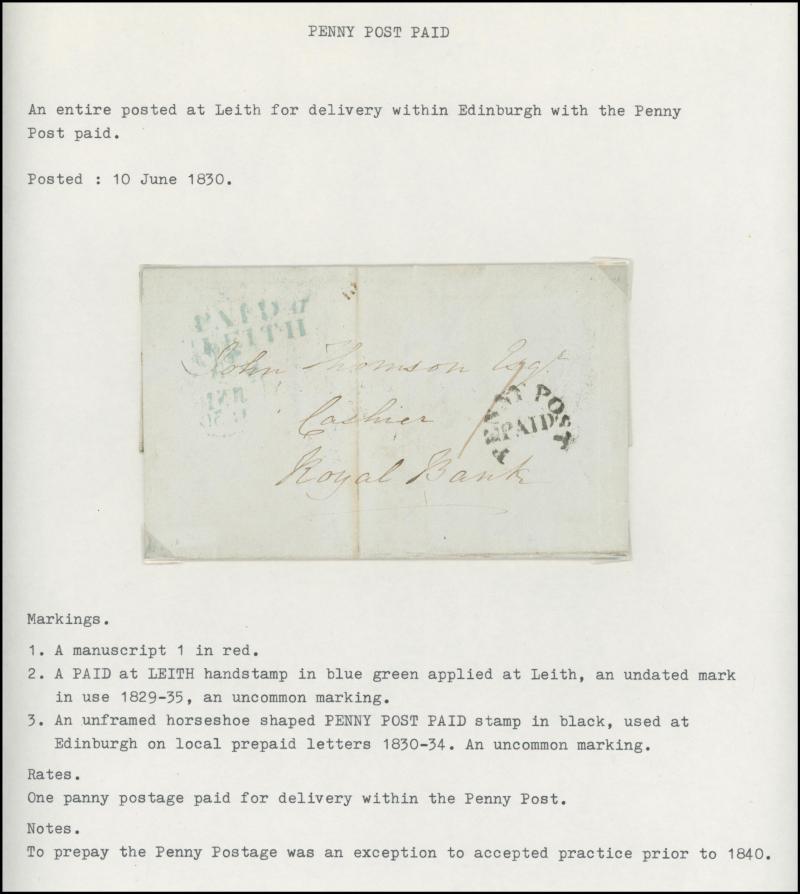 PENNY POST PAID
An entire posted at Leith for delivery within Edinburgh with the Penny
Post paid.
Posted : 10 June 1830.
PAID at
LEITH
John Thomson Esqr
Cashier
Royal Bank
1
PENNY POST
PAID
Markings.
1. A manuscript 1 in red.
2. A PAID at LEITH handstamp in blue green applied at Leith, an undated mark
in use 1829-35, an uncommon marking.
3. An unframed horseshoe shaped PENNY POST PAID stamp in black, used at
Edinburgh on local prepaid letters 1830-34. An uncommon marking.
Rates.
One panny postage paid for delivery within the Penny Post.
Notes.
To prepay the Penny Postage was an exception to accepted practice prior to 1840.